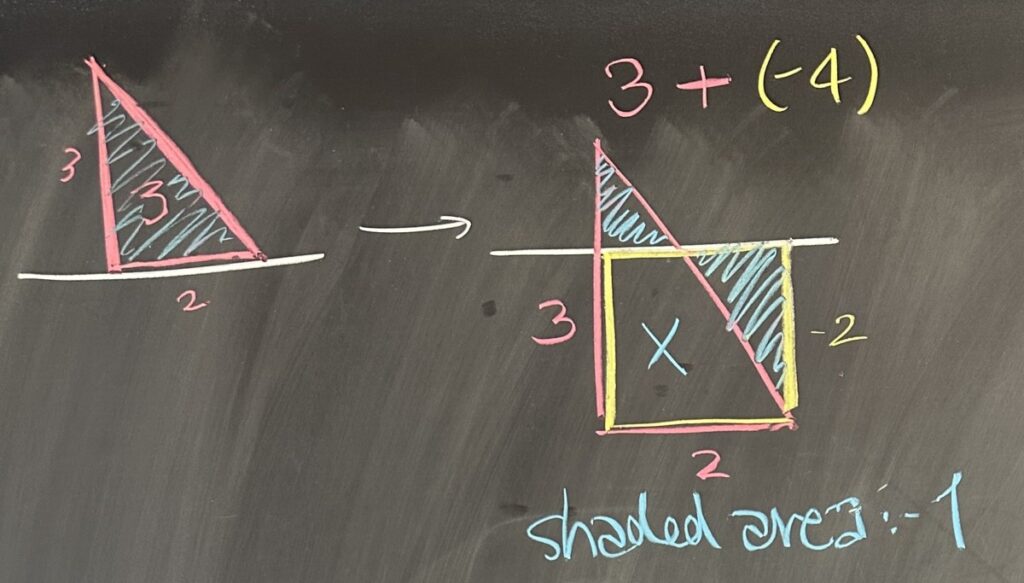 3 + (-4)
3
3
2
3
X
-2
2
shaded area : -1